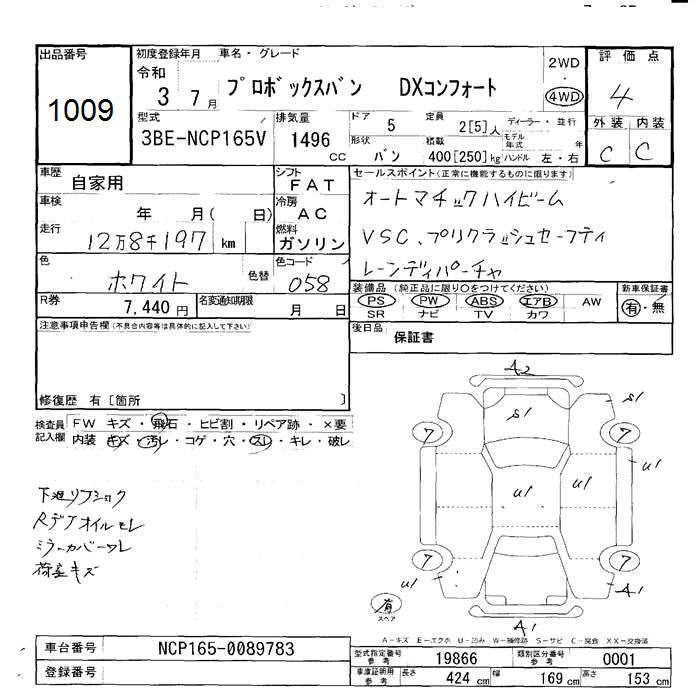 出品番号
1009
初度登録年月 車名・グレード
令和
3 7月 プロボックスバン DXコンフォート
2WD
・
4WD
評価点
4
外装 内装
C C
型式
3BE-NCP165V
排気量
1496
CC
ドア 5
定員 2[5]人
ディーラー・並行
モデル年式 年
形状 バン
積載 400[250]kg
ハンドル 左・右
車歴 自家用
シフト FAT
車検 年 月( 日)
冷房 AC
走行 12万8千197 km
燃料 ガソリン
色 ホワイト
色替
色コード 058
R券 7,440円
名変通知期限 月 日
セールスポイント(正常に機能するものに限ります)
オートマチックハイビーム
VSC、プリクラッシュセーフティ
レーンディパーチャ
装備品 (純正品に限り○をつけてください)
PS PW ABS エアB AW
SR ナビ TV カワ
新車保証書
有・無
後日品 保証書
注意事項申告欄(不具合内容等は具体的に記入して下さい)
修復歴 有 [箇所 ]
検査員記入欄
FW キズ・飛石・ヒビ割・リペア跡・×要
内装 キズ・汚レ・コゲ・穴・スレ・キレ・破レ
下廻リフショク
Rデフオイルモレ
ミラーカバーワレ
荷室キズ
A2
S1
S1
7
7
U1
U1
U1
7
7
U1
A1
A1
有
スペア
A-キズ E-エクボ U-凹み W-補修跡 S-サビ C-腐食 XX-交換済
車台番号 NCP165-0089783
登録番号
型式指定番号 参考 19866
類別区分番号 参考 0001
車庫証明用 参考 長さ 424 cm 幅 169 cm 高さ 153 cm